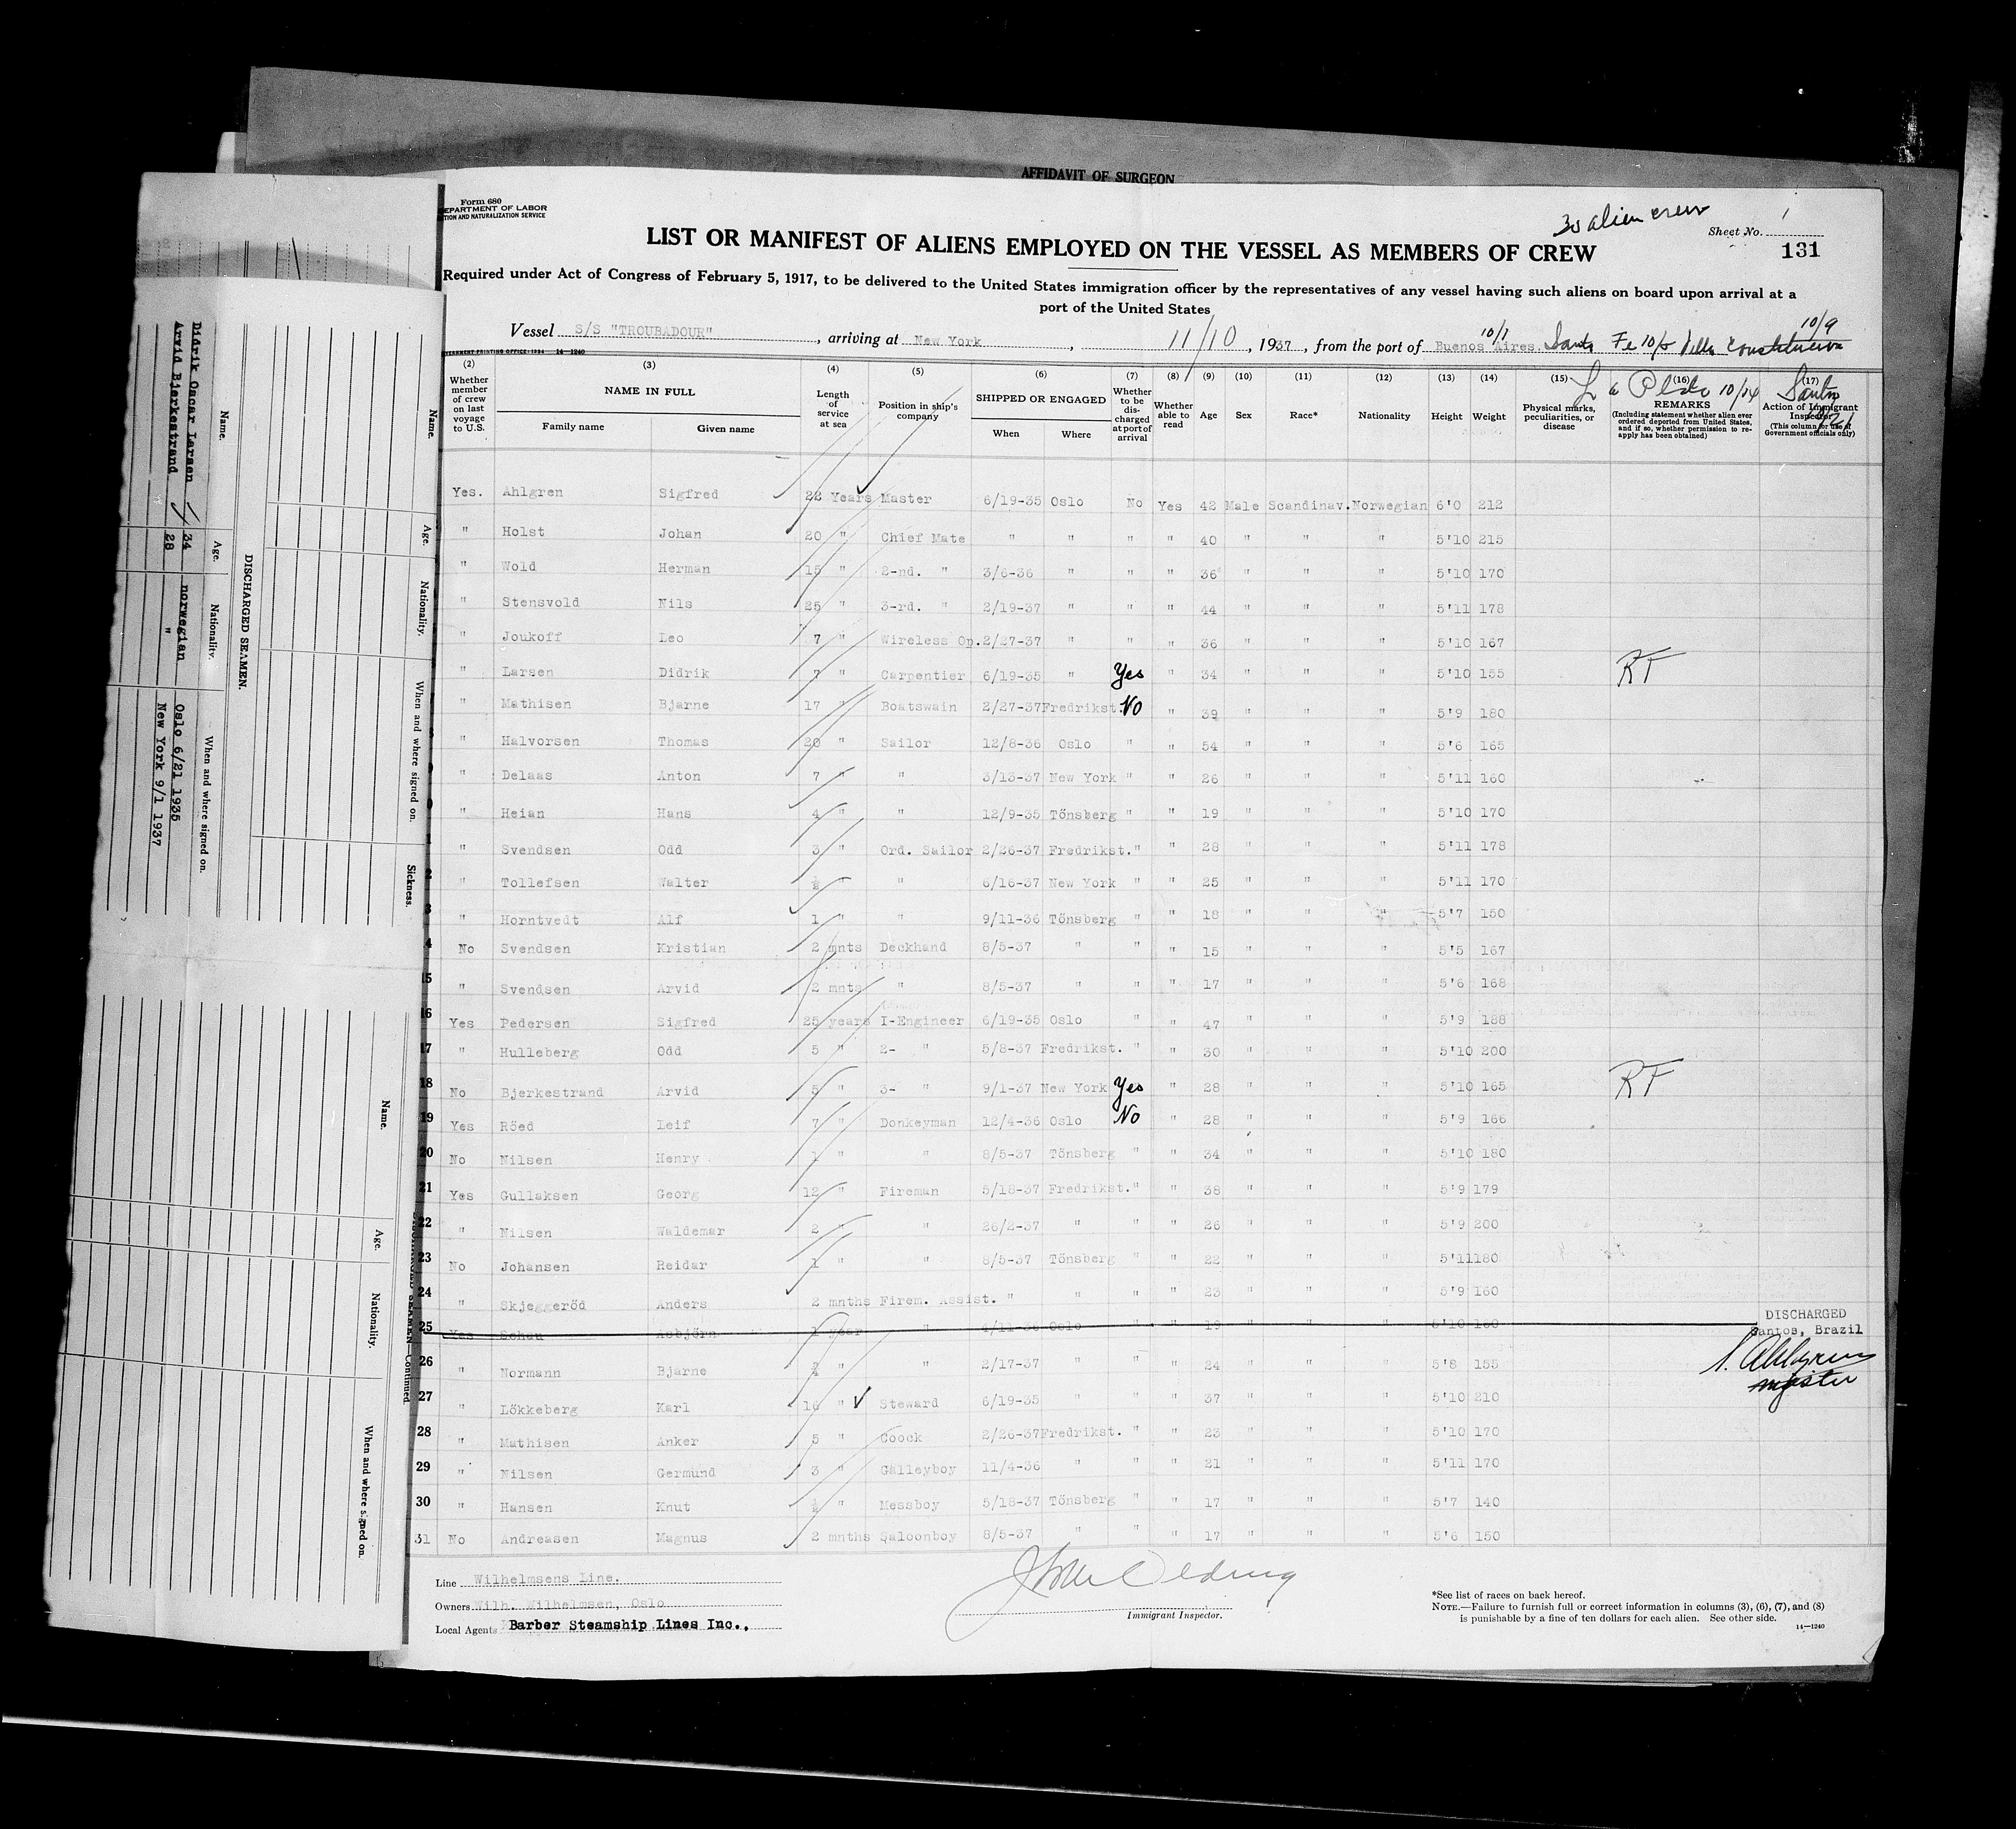 AFFIDAVIT OF SURGEON
Form 680
EPARTMENT OF LABOR
TION AND NATURALIZATION SERVICE
30 alien crew
Sheet No. 1
131
LIST OR MANIFEST OF ALIENS EMPLOYED ON THE VESSEL AS MEMBERS OF CREW
Required under Act of Congress of February 5, 1917, to be delivered to the United States immigration officer by the representatives of any vessel having such aliens on board upon arrival at a
port of the United States
10/1 10/9
Vessel S/S "TROUBADOUR", arriving at New York, 11/10, 1937, from the port of Buenos Aires. Santa Fe 10/5 Villa Constitucion
La Plata 10/14 Santos
VERNMENT PRINTING OFFICE: 1934 14—1240
(2) Whether member of crew on last voyage to U.S. (3) NAME IN FULL Family name Given name (4) Length of service at sea (5) Position in ship's company (6) SHIPPED OR ENGAGED When Where (7) Whether to be discharged at port of arrival (8) Whether able to read (9) Age (10) Sex (11) Race* (12) Nationality (13) Height (14) Weight (15) Physical marks, peculiarities, or disease (16) REMARKS (Including statement whether alien ever ordered deported from United States, and if so, whether permission to re-apply has been obtained) (17) Action of Immigrant Inspector (This column for use of Government officials only)
Yes. Ahlgren Sigfred 22 Years Master 6/19-35 Oslo No Yes 42 Male Scandinav. Norwegian 6'0 212
" Holst Johan 20 " Chief Mate " " " " 40 " " " 5'10 215
" Wold Herman 15 " 2-nd. " 3/6-36 " " " 36 " " " 5'10 170
" Stensvold Nils 25 " 3-rd. " 2/19-37 " " " 44 " " " 5'11 178
" Joukoff Leo 7 " Wireless Op. 2/27-37 " " " 36 " " " 5'10 167
" Larsen Didrik 7 " Carpentier 6/19-35 " Yes " 34 " " " 5'10 155 RF
" Mathisen Bjarne 17 " Boatswain 2/27-37 Fredrikst. No " 39 " " " 5'9 180
" Halvorsen Thomas 20 " Sailor 12/8-36 Oslo " " 54 " " " 5'6 165
" Delaas Anton 7 " " 3/13-37 New York " " 26 " " " 5'11 160
" Heian Hans 4 " " 12/9-35 Tönsberg " " 19 " " " 5'10 170
" Svendsen Odd 3 " Ord. Sailor 2/26-37 Fredrikst. " " 28 " " " 5'11 178
" Tollefsen Walter ½ " 6/16-37 New York " " 25 " " " 5'11 170
" Horntvedt Alf 1 " " 9/11-36 Tönsberg " " 18 " " " 5'7 150
4 No Svendsen Kristian 2 mnts Deckhand 8/5-37 " " " 15 " " " 5'5 167
15 " Svendsen Arvid 2 mnts " 8/5-37 " " " 17 " " " 5'6 168
16 Yes Pedersen Sigfred 25 years I-Engineer 6/19-35 Oslo " " 47 " " " 5'9 188
17 " Hulleberg Odd 5 " 2- " 5/8-37 Fredrikst. " " 30 " " " 5'10 200
18 No Bjerkestrand Arvid 5 " 3- " 9/1-37 New York Yes " 28 " " " 5'10 165 RF
19 Yes Röed Leif 7 " Donkeyman 12/4-36 Oslo No " 28 " " " 5'9 166
20 No Nilsen Henry 1 " " 8/5-37 Tönsberg " " 34 " " " 5'10 180
21 Yes Gullaksen Georg 12 " Fireman 5/18-37 Fredrikst. " " 38 " " " 5'9 179
22 " Nilsen Waldemar 2 " " 26/2-37 " " " 26 " " " 5'9 200
23 No Johansen Reidar 1 " " 8/5-37 Tönsberg " " 22 " " " 5'11 180
24 " Skjeggeröd Anders 2 mnths Firem. Assist. " " " " 23 " " " 5'9 160
25 Yes Schau Asbjörn 1 year " 4/11-36 Oslo " " 19 " " " 5'10 160 DISCHARGED
Santos, Brazil
S. Ahlgren
master
26 " Normann Bjarne " " 2/17-37 " " " 24 " " " 5'8 155
27 " Lökkeberg Karl 16 " Steward 6/19-35 " " " 37 " " " 5'10 210
28 " Mathisen Anker 5 " Coock 2/26-37 Fredrikst. " " 23 " " " 5'10 170
29 " Nilsen Germund 3 " Galleyboy 11/4-36 " " " 21 " " " 5'11 170
30 " Hansen Knut ½ " Messboy 5/18-37 Tönsberg " " 17 " " " 5'7 140
31 No Andreasen Magnus 2 mnths Saloonboy 8/5-37 " " " 17 " " " 5'6 150
Line Wilhelmsens Line.
Owners Wilh. Wilhelmsen, Oslo
Local Agents Barber Steamship Lines Inc.,
Immigrant Inspector.
*See list of races on back hereof.
NOTE.—Failure to furnish full or correct information in columns (3), (6), (7), and (8)
is punishable by a fine of ten dollars for each alien. See other side.
14—1240
Name. Age. Nationality. When and where signed on. Sickness.
DISCHARGED SEAMEN.
Name. Age. Nationality. When and where signed on.
Didrik Oscar Larsen 34 norwegian Oslo 6/21 1935
Arvid Bjerkestrand 28 " New York 9/1 1937
DISCHARGED SEAMEN—Continued.
Name. Age. Nationality. When and where signed on.